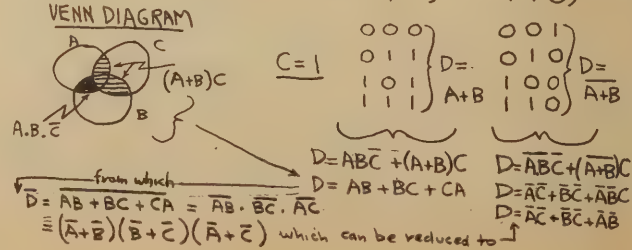 VENN DIAGRAM
A
C
(A+B)C
B
A.B.C̅
C=1
0 0 0
0 1 1
1 0 1
1 1 1
D=
A+B
0 0 1
0 1 0
1 0 0
1 1 0
D=
\overline{A+B}
D=ABC̅ +(A+B)C
D= AB + BC + CA
D=\overline{AB}C̅+(\overline{A+B})C
D=A̅C̅+B̅C̅+A̅B̅C
D=A̅C̅+B̅C̅+A̅B̅
from which
D̅ = \overline{AB + BC + CA} = \overline{AB} · \overline{BC} · \overline{AC}
≡ (A̅+B̅)(B̅+C̅)(A̅+C̅) which can be reduced to